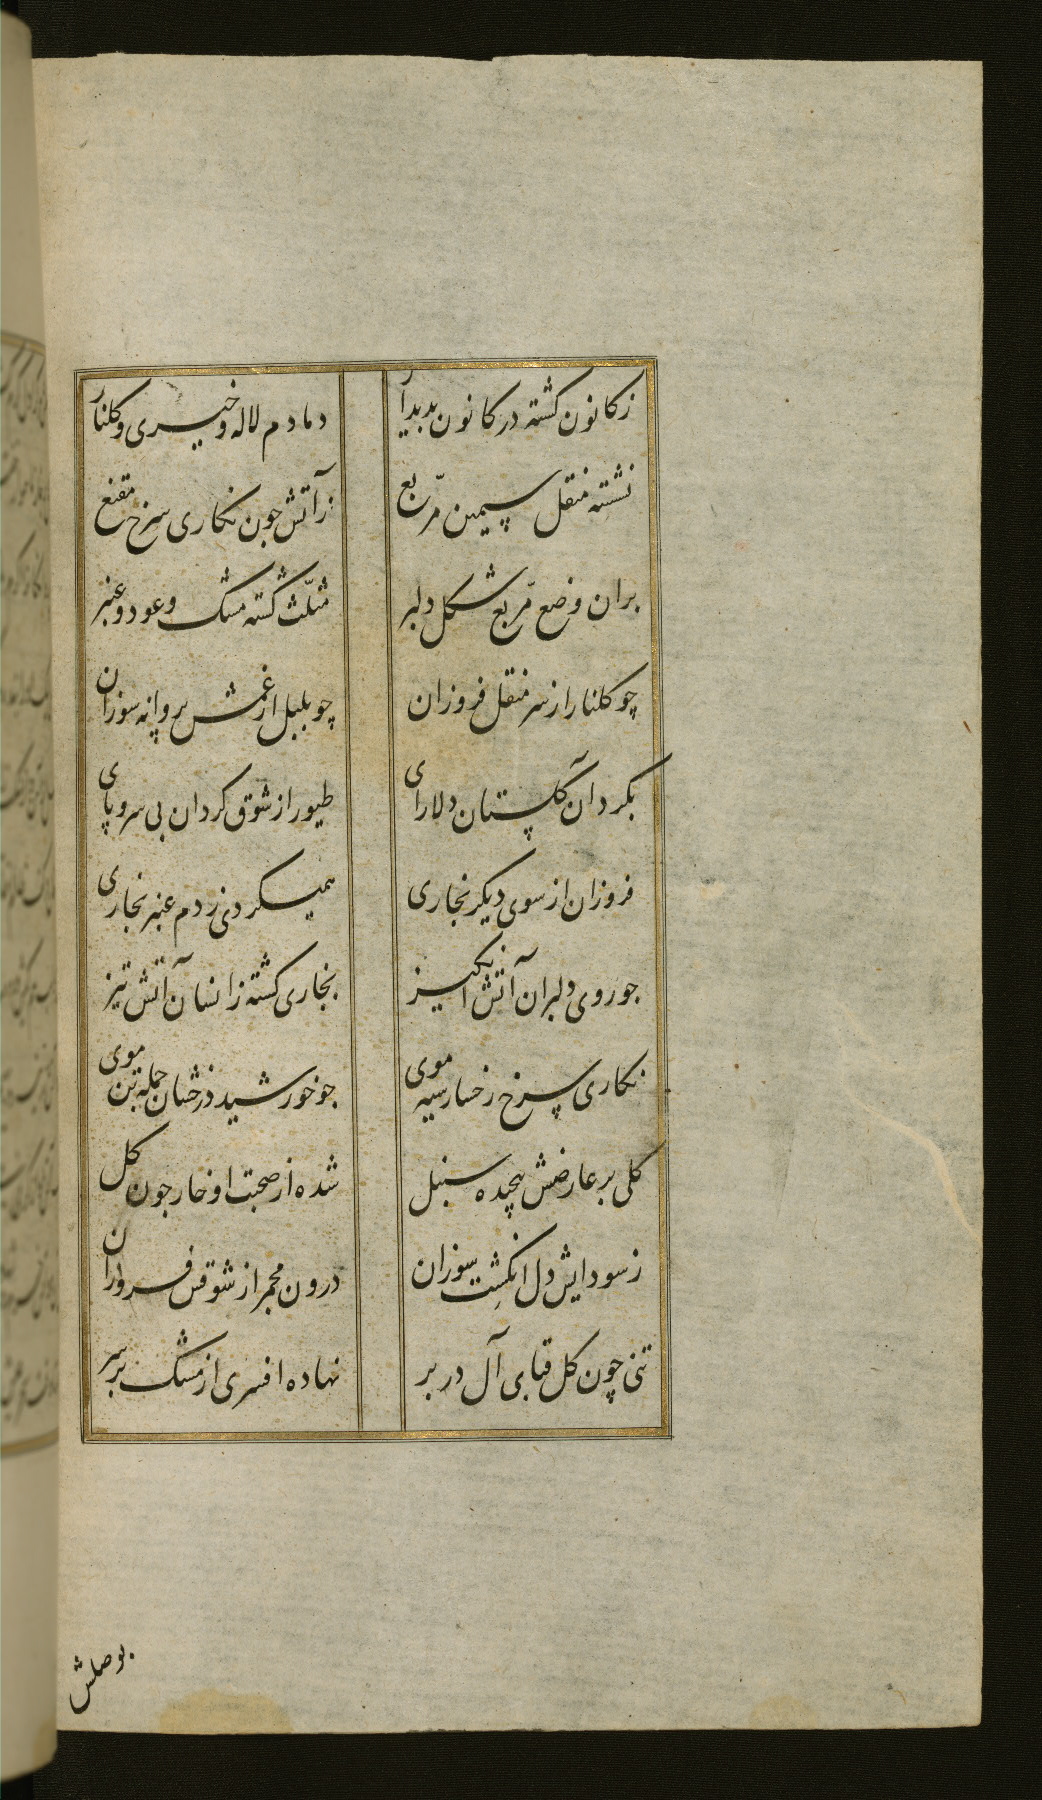 زکانون کشته در کانون بدیدار دمادم لاله و خیری و کلنار
نشسته منقل سیمین مربّع ز آتش جون نکاری سرخ مقنع
بران وضع مربّع شکل دلبر مثلّث کشته مشک و عود و عنبر
چو کلنار از سر منقل فروزان چو بلبل از غمش پروانه سوزان
بکرد آن کلستان دلارای طیور از شوق کردان بی سر و پای
فروزان از سوی دیکر بخاری همیکردی ز دم عنبر بخاری
جو روی دلبران آتش انکیز بخاری کشته زانسان آتش تیز
نکاری سرخ رخسار سیه موی جو خورشید درخشان جمله تن موی
کلی بر عارضش پیچیده سنبل شده از صحبت او خار جون کل
ز سودایش دل انکشت سوزان درون مجمر از شوقش فروزان
تنی چون کل قبای آل در بر نهاده افسری از مشک بر سر
بوصلش